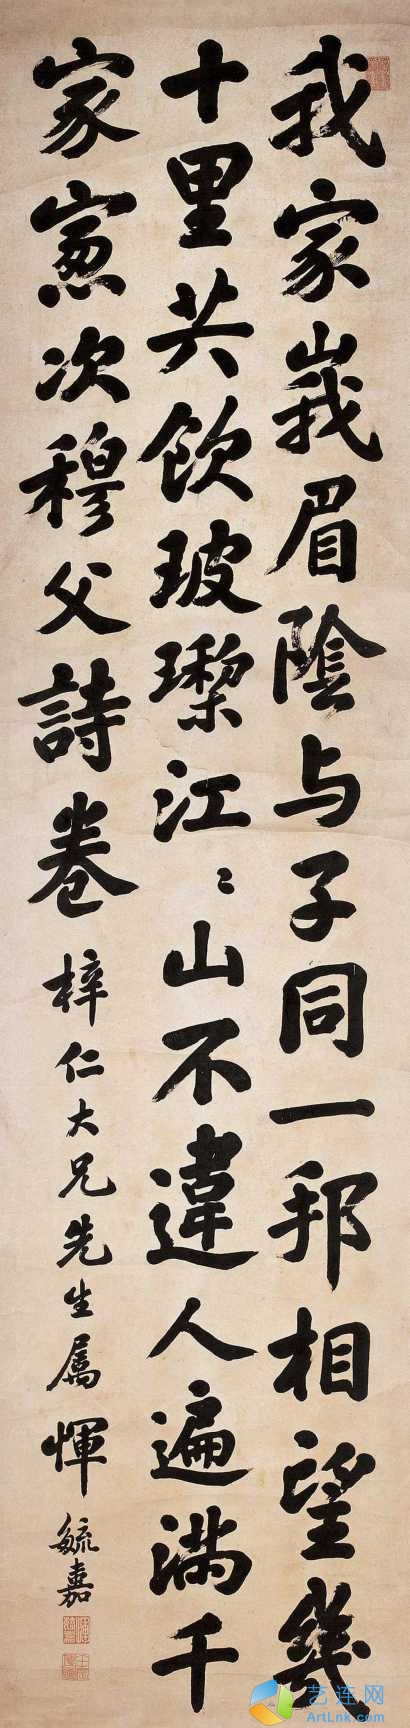 我家峩眉陰与子同一邦相望幾
十里共飲玻瓈江江山不違人遍满千
家窻次穆父詩卷
梓仁大兄先生属 惲毓嘉
艺连网
ArtLnk.com